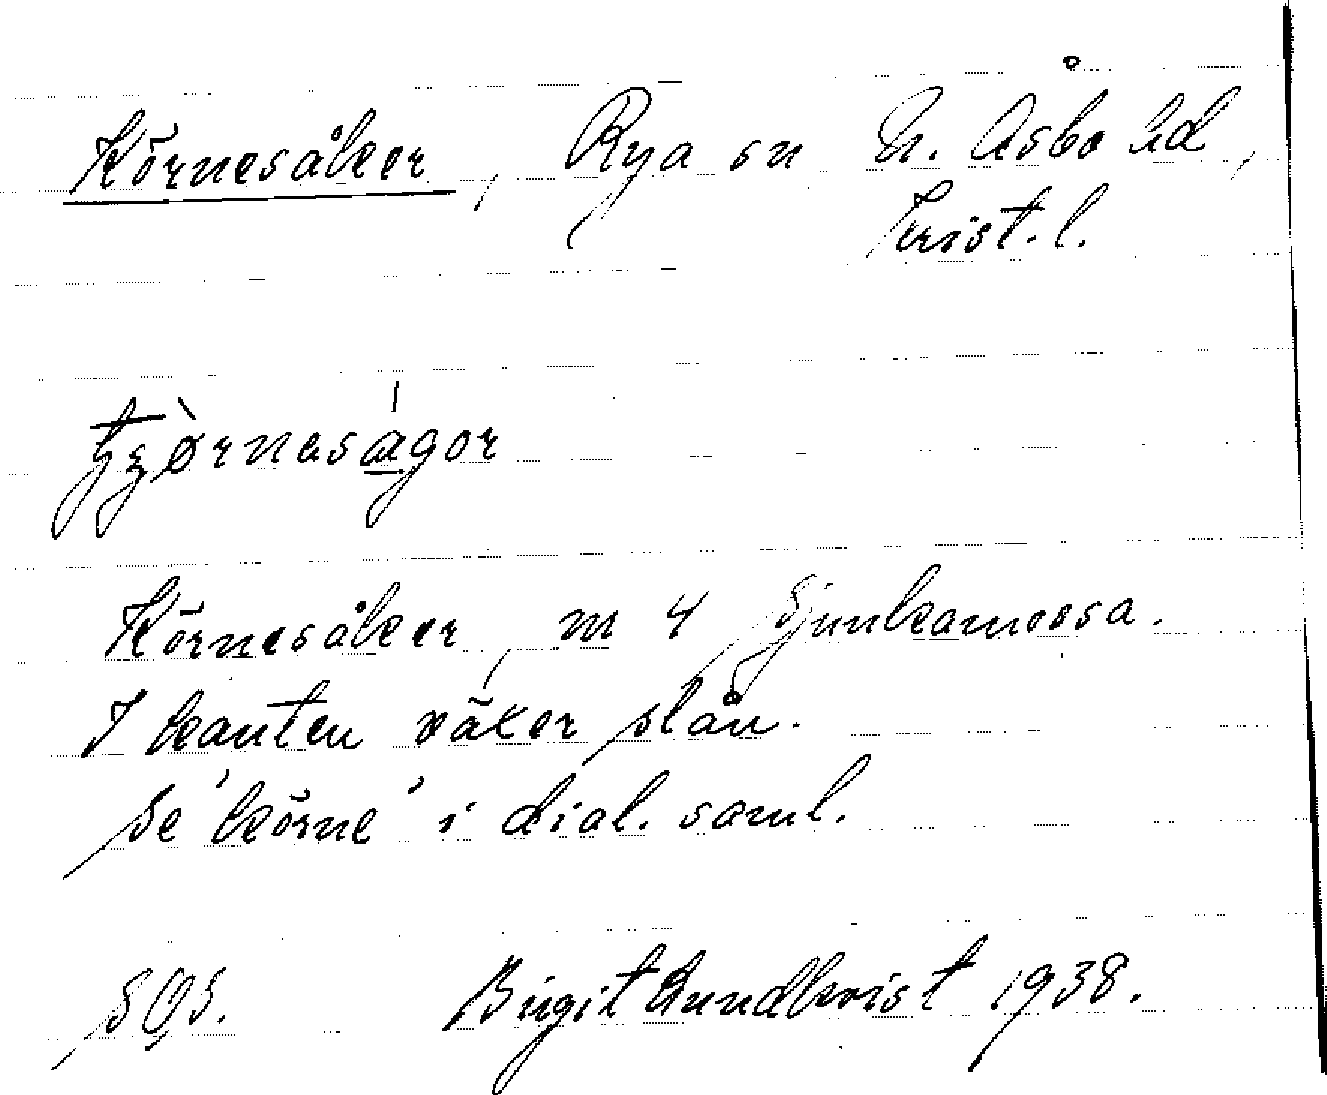 Körnesåker, Rya sn N. Åsbo hd,
Krist. l.
Körnesåker, m 4 Sjunkamossa.
I kanten växer slån.
Se 'körne' i dial. saml.
Birgit Lundkvist 1938.